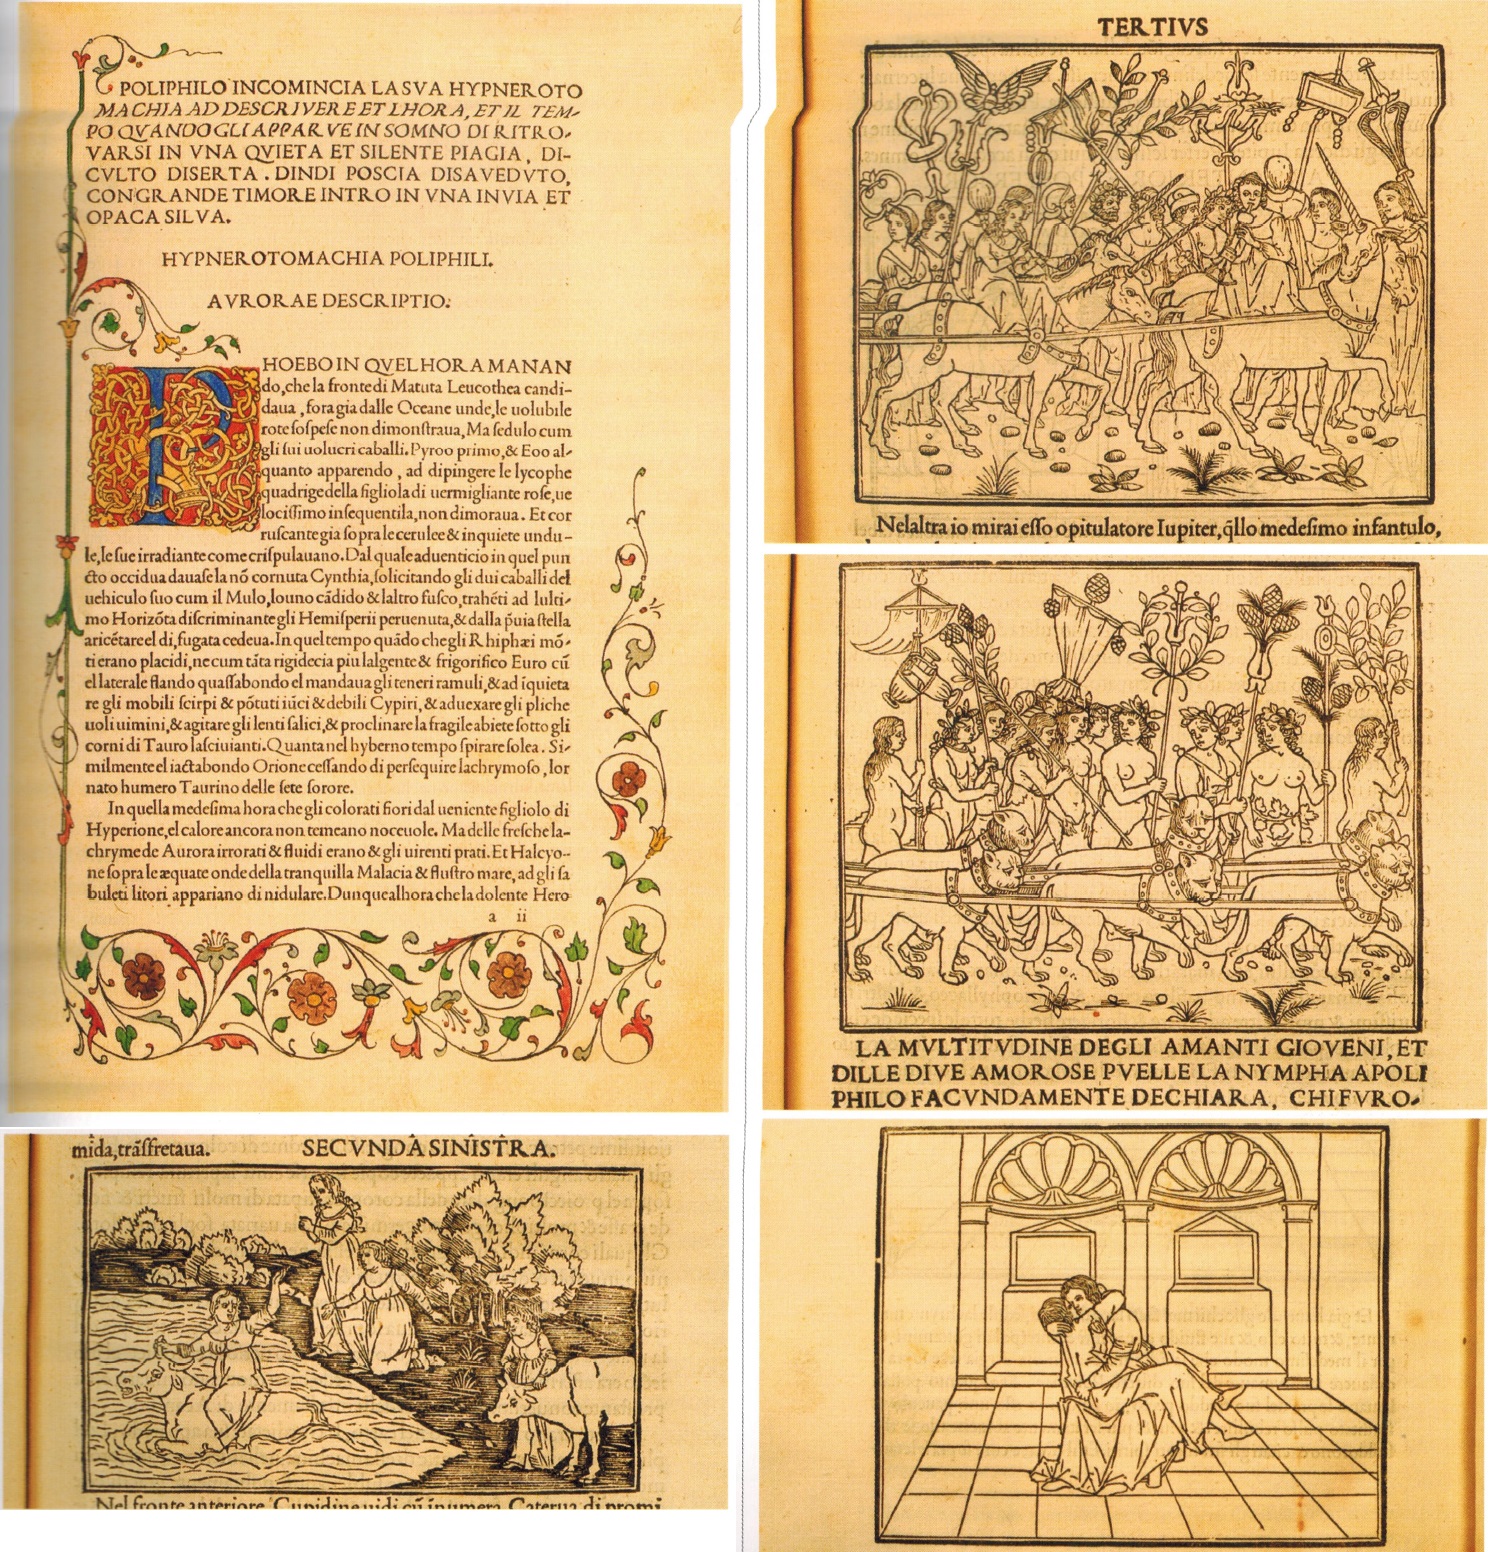 POLIPHILO INCOMINCIA LA SVA HYPNEROTO
MACHIA AD DESCRIVERE ET LHORA, ET IL TEM-
PO QVANDO GLI APPARVE IN SOMNO DI RITRO-
VARSI IN VNA QVIETA ET SILENTE PIAGIA, DI-
CVLTO DISERTA. DINDI POSCIA DISAVEDVTO,
CON GRANDE TIMORE INTRO IN VNA INVIA ET
OPACA SILVA.
HYPNEROTOMACHIA POLIPHILI.
AVRORAE DESCRIPTIO.
PHOEBO IN QVEL HORA MANAN
do, che la fronte di Matuta Leucothea candi-
daua, fora gia dalle Oceane unde, le uolubile
rote sospese non dimonstraua, Ma sedulo cum
gli sui uolucri caballi. Pyroo primo, & Eoo al-
quanto apparendo, ad dipingere le lycophe
quadrige della figliola di uermigliante rose, ue
locissimo insequentila, non dimoraua. Et cor
ruscante gia sopra le cerulee & inquiete undu-
le, le sue irradiante come crispulauano. Dal quale aduenticio in quel pun
cto occidua dauase la nõ cornuta Cynthia, solicitando gli dui caballi del
uehiculo suo cum il Mulo, lo uno cãdido & laltro fusco, trahẽti ad lulti-
mo Horizõta discriminante gli Hemisperii peruenuta, & dalla p̃uia stella
a ricẽtare el di, fugata cedeua. In quel tempo quãdo che gli Rhiphæi mõ-
ti erano placidi, ne cum tãta rigidecia piu lalgente & frigorifico Euro cũ
el laterale flando quassabondo el mandaua gli teneri ramuli, & ad iquieta
re gli mobili scirpi & põtuti iũci & debili Cypiri, & aduexare gli pliche
uoli uimini, & agitare gli lenti salici, & proclinare la fragile abiete sotto gli
corni di Tauro lasciuianti. Quanta nel hyberno tempo spirare solea. Si-
milmente el iactabondo Orione cessando di persequire lachrymoso, lor
nato humero Taurino delle sete sorore.
In quella medesima hora che gli colorati fiori dal ueniente figliolo di
Hyperione, el calore ancora non temeano noceuole. Ma delle fresche la-
chryme de Aurora irrorati & fluidi erano & gli uirenti prati. Et Halcyo-
ne sopra le æquate onde della tranquilla Malacia & flustro mare, ad gli sa
buleti litori appariano di nidulare. Dunque alhora che la dolente Hero
a ii
mida, trãsfretaua. SECVNDA SINISTRA.
Nel fronte anteriore Cupidine uidi cũ ĩnumera Caterua di promĩ
TERTIVS
Nelaltra io mirai esso opitulatore Iupiter, q̃llo medesimo infantulo,
LA MVLTITVDINE DEGLI AMANTI GIOVENI, ET
DILLE DIVE AMOROSE PVELLE LA NYMPHA A POLI
PHILO FACVNDAMENTE DECHIARA, CHI FVRO-